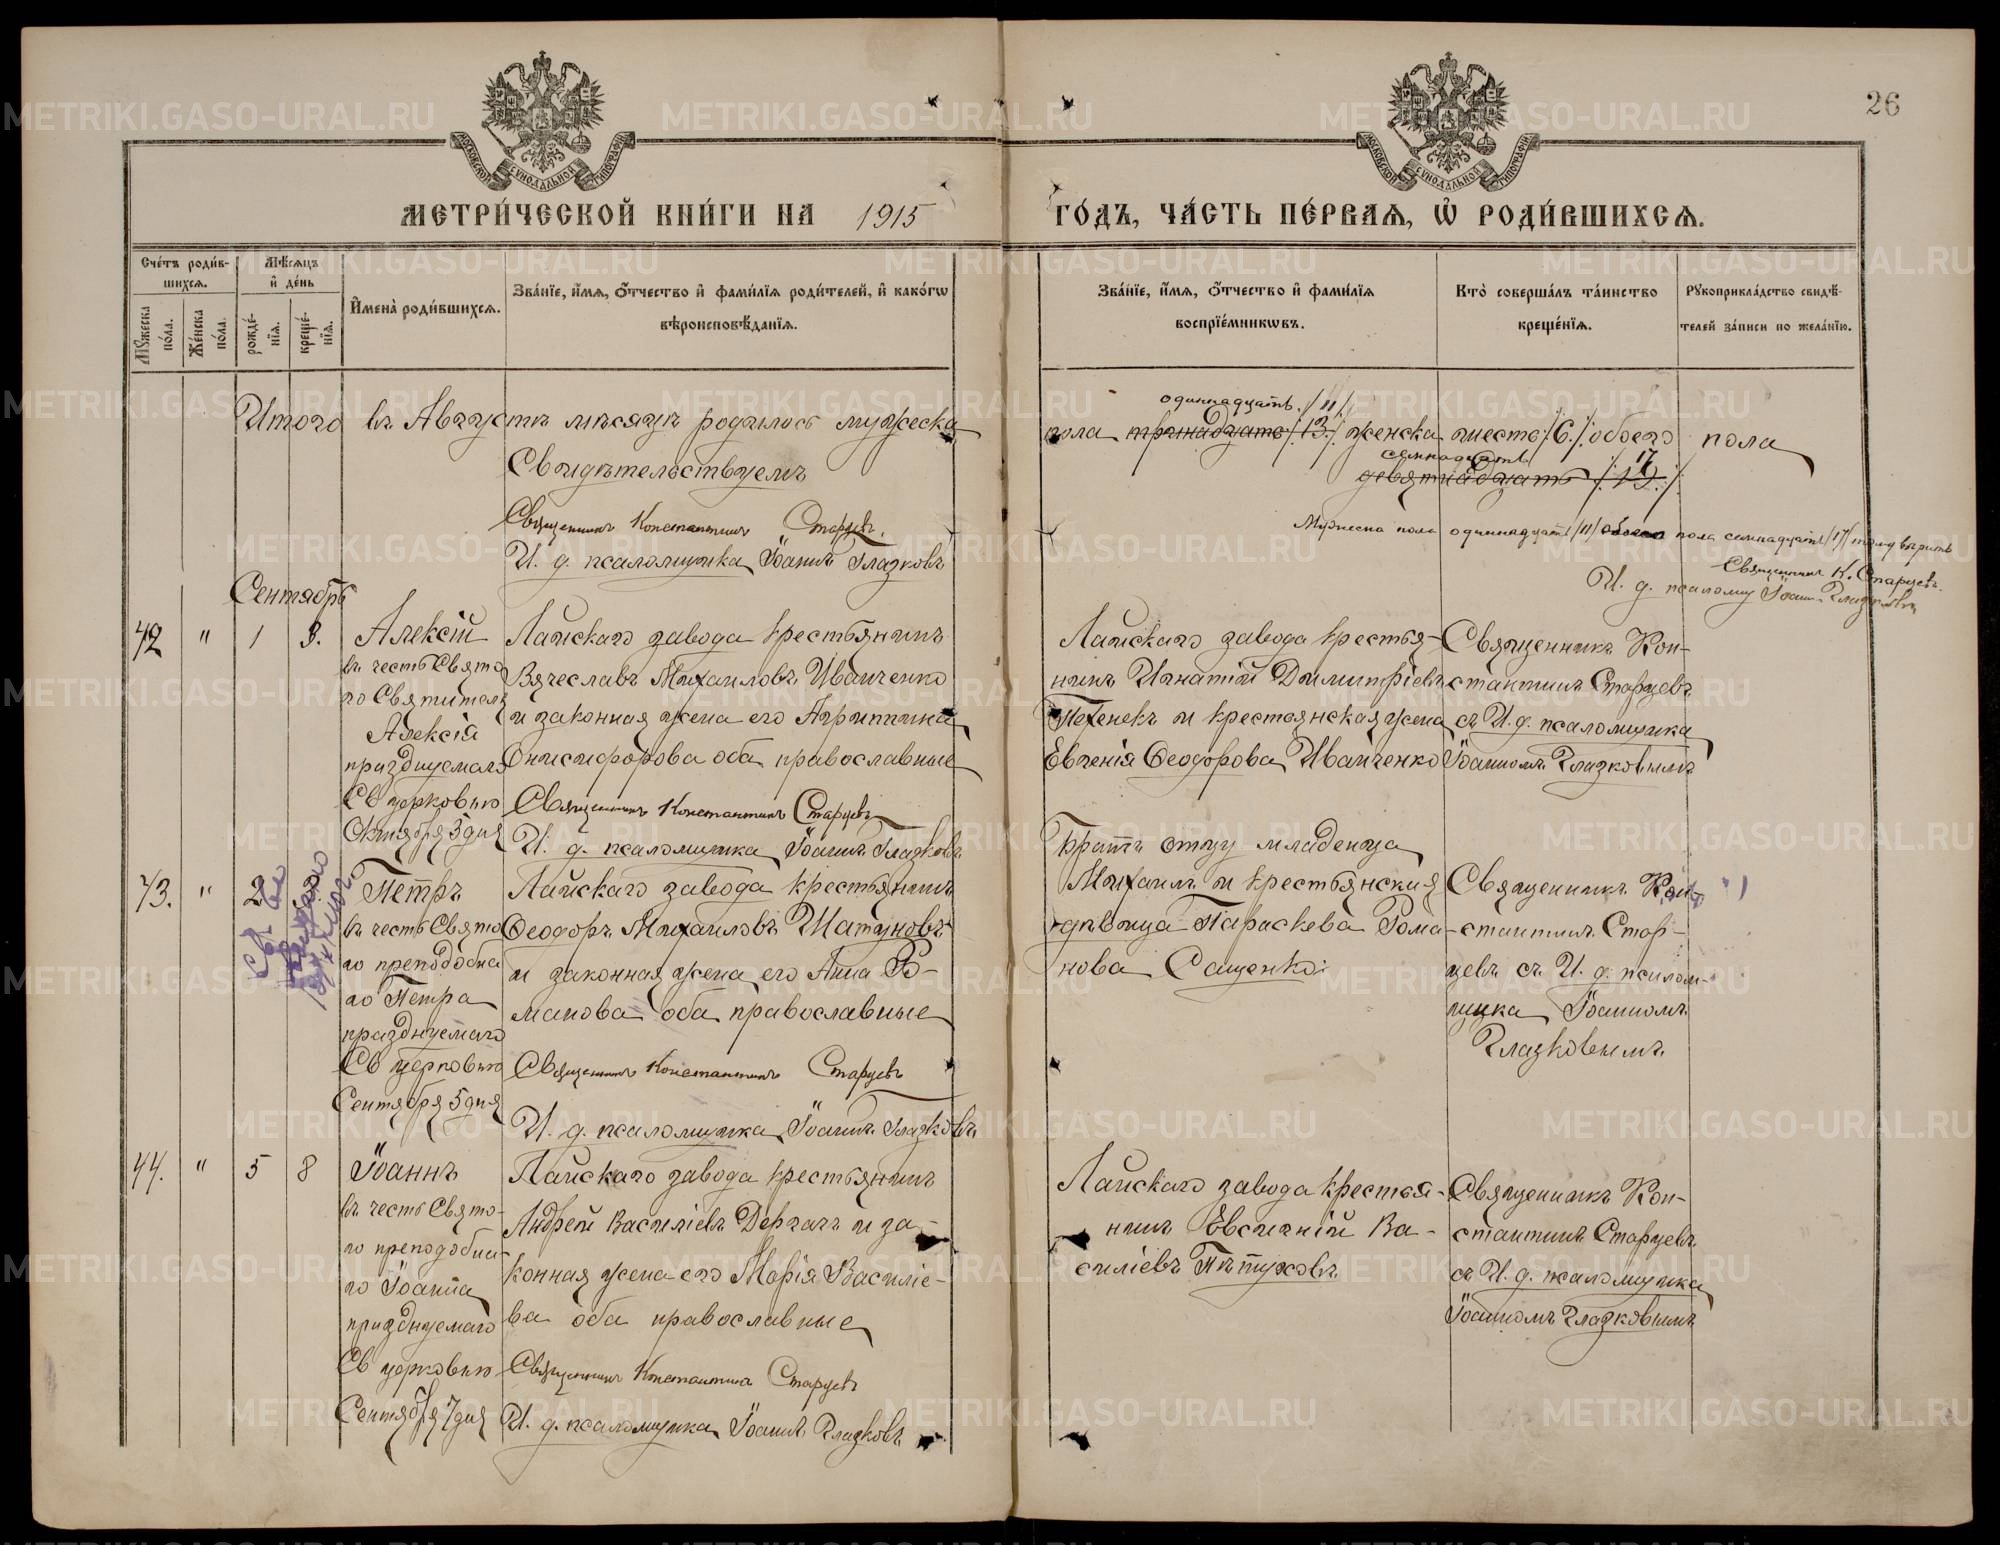 26
МЕТРИ́ЧЕСКОЙ КНИ́ГИ НА 1915 ГО́ДЪ, ЧА́СТЬ ПЕ́РВАЯ, Ѡ РОДИ́ВШИХСЯ.
Сче́тъ роди́в-
шихся.
Мѣ́сяцъ
и де́нь
Мꙋ́жеска
по́ла.
Же́нска
по́ла.
рожде́-
нїя.
креще́-
нїя.
И҆мена̀ роди́вшихся.
Зва́нїе, и҆́мя, ѻ҆́тчество и҆ фами́лїя роди́телей, и҆ како́гѡ
вѣроисповѣ́данїя.
Зва́нїе, и҆́мя, ѻ҆́тчество и҆ фами́лїя
воспрїе́мникѡвъ.
Кто̀ соверша́лъ та́инство
креще́нїя.
Рꙋкоприкла́дство свидѣ́-
телей за́писи по жела́нїю.
Итого въ Августѣ мѣсяцѣ родилось мужеска
одиннадцать /11/
пола тринадцать /13/ женска шесть /6/ обоего пола
семнадцать 17
девятнадцать /19/
Свидѣтельствуемъ
Священникъ Константинъ Старцевъ.
И. д. псаломщика Іоаннъ Глазковъ
Мужеска пола одиннадцать /11/ обоего пола семнадцать /17/ тому вѣрить
Священникъ К. Старцевъ.
И. д. псаломщ Іоаннъ Глазковъ
Сентябрь
42 " 1 3. Алексій
въ честь Свято
го Святителя
Алексія
празднуемаго
Св церковью
Октября 5 дня
Лайскаго завода крестьянинъ
Вячеславъ Михаиловъ Иванченко
и законная жена его Агриппина
Онисифорова оба православные
Священникъ Константинъ Старцевъ
И. д. псаломщика Іоаннъ Глазковъ
Лайскаго завода крестья-
нинъ Игнатій Димитріевъ
Пехенекъ и крестьянская жена
Евгенія Ѳеодорова Иванченко
Священникъ Кон-
стантинъ Старцевъ
съ И. д. псаломщика
Іоанномъ Глазковымъ
43. " 2 Петръ
въ честь Свято
го преподобна
го Петра
празднуемаго
Св церковью
Сентября 5 дня
Лайскаго завода крестьянинъ
Ѳеодоръ Михаиловъ Шатуновъ
и законная жена его Анна Ро-
манова оба православные
Священникъ Константинъ Старцевъ
И. д. псаломщика Іоаннъ Глазковъ
Братъ отцу младенца
Михаилъ и крестьянская
дѣвица Параскева Рома-
нова Сащенко
Священникъ Кон-
стантинъ Стар-
цевъ съ И. д. псалом-
щика Іоанномъ
Глазковымъ
44. " 5 8 Іоаннъ
въ честь Свято-
го преподобна-
го Іоанна
празднуемаго
Св церковью
Сентября 7 дня
Лайскаго завода крестьянинъ
Андрей Василіевъ Дергачъ и за-
конная жена его Марія Василіе-
ва оба православные
Священникъ Константинъ Старцевъ
И. д. псаломщика Іоаннъ Глазковъ
Лайскаго завода крестья-
нинъ Евсигній Ва-
силіевъ Пѣтуховъ
Священникъ Кон-
стантинъ Старцевъ
съ И. д. псаломщика
Іоанномъ Глазковымъ
METRIKI.GASO-URAL.RU